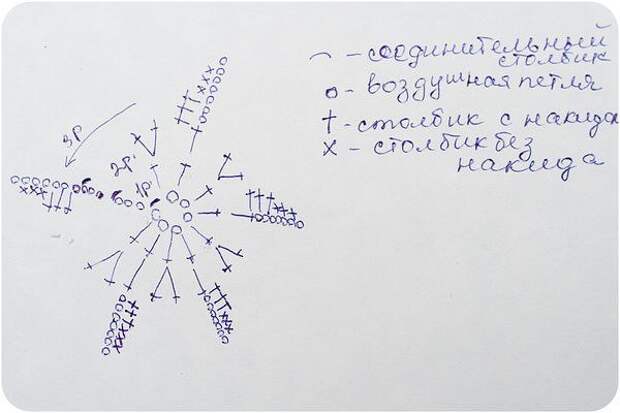 ⌒ - соединительный
столбик
о - воздушная петля
† - столбик с накидом
x - столбик без
накида
3р
2р.
1р.